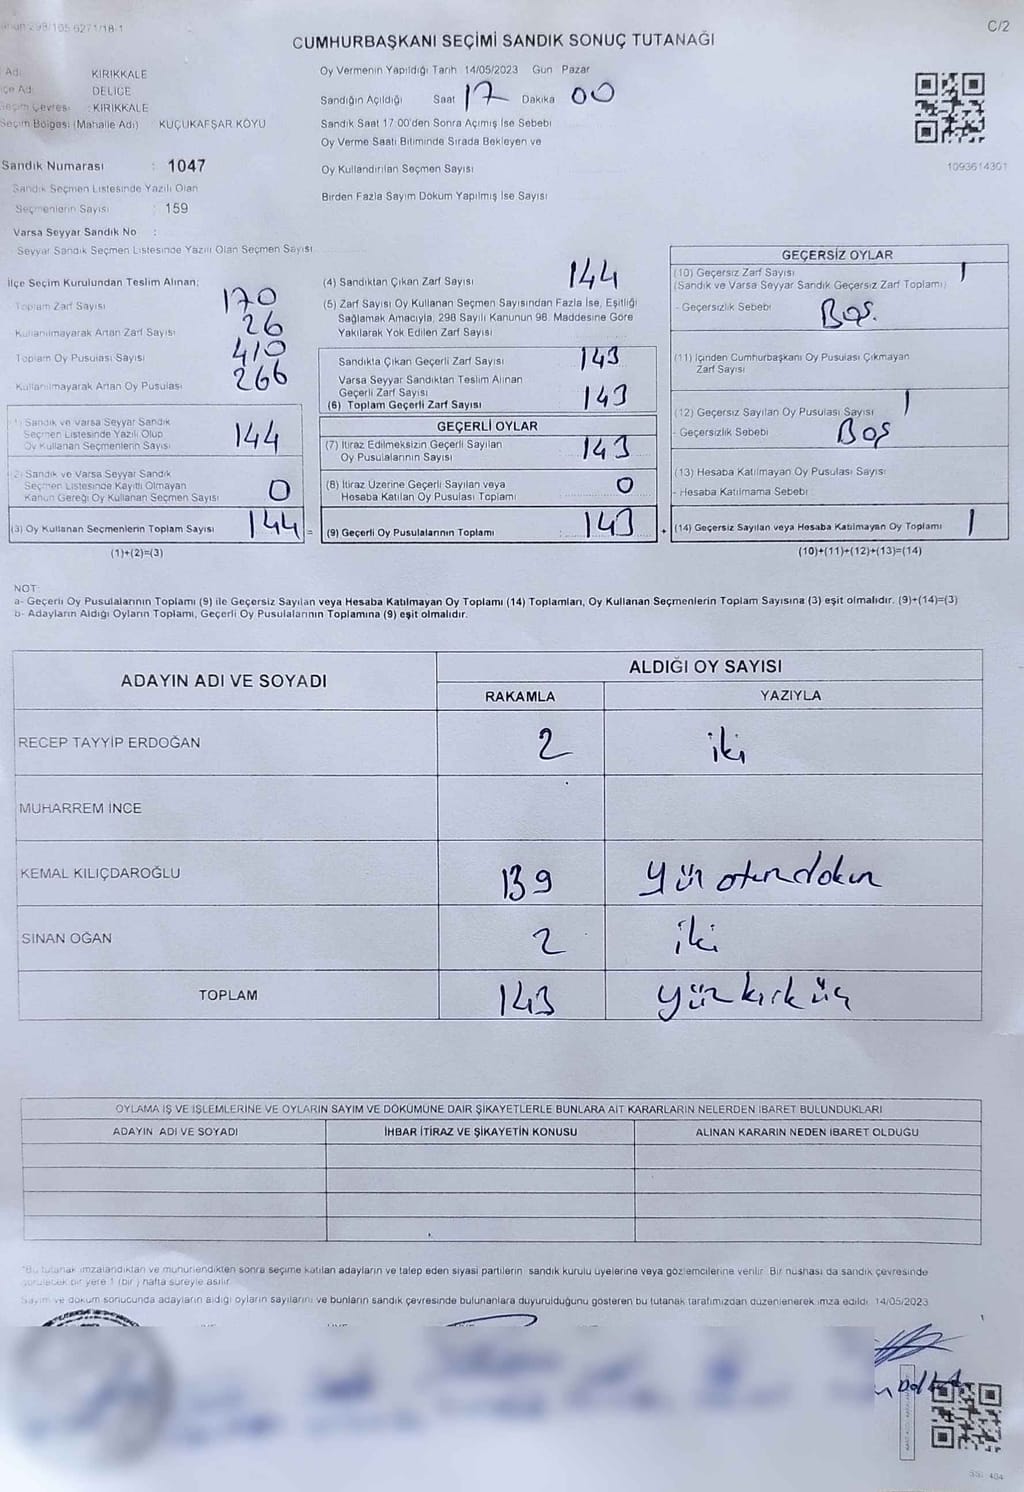 C/2
CUMHURBAŞKANI SEÇİMİ SANDIK SONUÇ TUTANAĞI
Adı KIRIKKALE
DELİCE
Seçim Çevresi : KIRIKKALE
Seçim Bölgesi (Mahalle Adı) KÜÇÜKAFŞAR KÖYÜ
Sandık Numarası : 1047
Sandık Seçmen Listesinde Yazılı Olan
Seçmenlerin Sayısı : 159
Varsa Seyyar Sandık No :
Seyyar Sandık Seçmen Listesinde Yazılı Olan Seçmen Sayısı
Oy Vermenin Yapıldığı Tarih 14/05/2023 Gün Pazar
Sandığın Açıldığı Saat 17 Dakika 00
Sandık Saat 17:00'den Sonra Açımış İse Sebebi
Oy Verme Saati Bitiminde Sırada Bekleyen ve
Oy Kullandırılan Seçmen Sayısı
Birden Fazla Sayım Döküm Yapılmış İse Sayısı
1093614301
İlçe Seçim Kurulundan Teslim Alınan;
Toplam Zarf Sayısı 170
Kullanılmayarak Artan Zarf Sayısı 26
Toplam Oy Pusulası Sayısı 410
Kullanılmayarak Artan Oy Pusulası 266
(1) Sandık ve Varsa Seyyar Sandık
Seçmen Listesinde Yazılı Olup
Oy Kullanan Seçmenlerin Sayısı 144
(2) Sandık ve Varsa Seyyar Sandık
Seçmen Listesinde Kayıtlı Olmayan
Kanun Gereği Oy Kullanan Seçmen Sayısı 0
(3) Oy Kullanan Seçmenlerin Toplam Sayısı 144 =
(1)+(2)=(3)
(4) Sandıktan Çıkan Zarf Sayısı 144
(5) Zarf Sayısı Oy Kullanan Seçmen Sayısından Fazla İse, Eşitliği
Sağlamak Amacıyla, 298 Sayılı Kanunun 98. Maddesine Göre
Yakılarak Yok Edilen Zarf Sayısı
Sandıkta Çıkan Geçerli Zarf Sayısı 143
Varsa Seyyar Sandıktan Teslim Alınan
Geçerli Zarf Sayısı
(6) Toplam Geçerli Zarf Sayısı 143
GEÇERLİ OYLAR
(7) İtiraz Edilmeksizin Geçerli Sayılan
Oy Pusulalarının Sayısı 143
(8) İtiraz Üzerine Geçerli Sayılan veya
Hesaba Katılan Oy Pusulası Toplamı 0
(9) Geçerli Oy Pusulalarının Toplamı : 143 +
GEÇERSİZ OYLAR
(10) Geçersiz Zarf Sayısı 1
(Sandık ve Varsa Seyyar Sandık Geçersiz Zarf Toplamı)
- Geçersizlik Sebebi Boş.
(11) İçinden Cumhurbaşkanı Oy Pusulası Çıkmayan
Zarf Sayısı
(12) Geçersiz Sayılan Oy Pusulası Sayısı 1
- Geçersizlik Sebebi Boş
(13) Hesaba Katılmayan Oy Pusulası Sayısı
- Hesaba Katılmama Sebebi
(14) Geçersiz Sayılan veya Hesaba Katılmayan Oy Toplamı 1
(10)+(11)+(12)+(13)=(14)
NOT:
a- Geçerli Oy Pusulalarının Toplamı (9) ile Geçersiz Sayılan veya Hesaba Katılmayan Oy Toplamı (14) Toplamları, Oy Kullanan Seçmenlerin Toplam Sayısına (3) eşit olmalıdır. (9)+(14)=(3)
b- Adayların Aldığı Oyların Toplamı, Geçerli Oy Pusulalarının Toplamına (9) eşit olmalıdır.
ADAYIN ADI VE SOYADI ALDIĞI OY SAYISI
RAKAMLA YAZIYLA
RECEP TAYYİP ERDOĞAN 2 iki
MUHARREM İNCE
KEMAL KILIÇDAROĞLU 139 yüz otuzdokuz
SİNAN OĞAN 2 iki
TOPLAM 143 yüzkırküç
OYLAMA İŞ VE İŞLEMLERİNE VE OYLARIN SAYIM VE DÖKÜMÜNE DAİR ŞİKAYETLERLE BUNLARA AİT KARARLARIN NELERDEN İBARET BULUNDUKLARI
ADAYIN ADI VE SOYADI İHBAR İTİRAZ VE ŞİKAYETİN KONUSU ALINAN KARARIN NEDEN İBARET OLDUĞU
*Bu tutanak imzalandıktan ve mühürlendikten sonra seçime katılan adayların ve talep eden siyasi partilerin sandık kurulu üyelerine veya gözlemcilerine verilir. Bir nüshası da sandık çevresinde
görülecek bir yere 1 (bir ) hafta süreyle asılır.
Sayım ve döküm sonucunda adayların aldığı oyların sayılarını ve bunların sandık çevresinde bulunanlara duyurulduğunu gösteren bu tutanak tarafımızdan düzenlenerek imza edildi. 14/05/2023